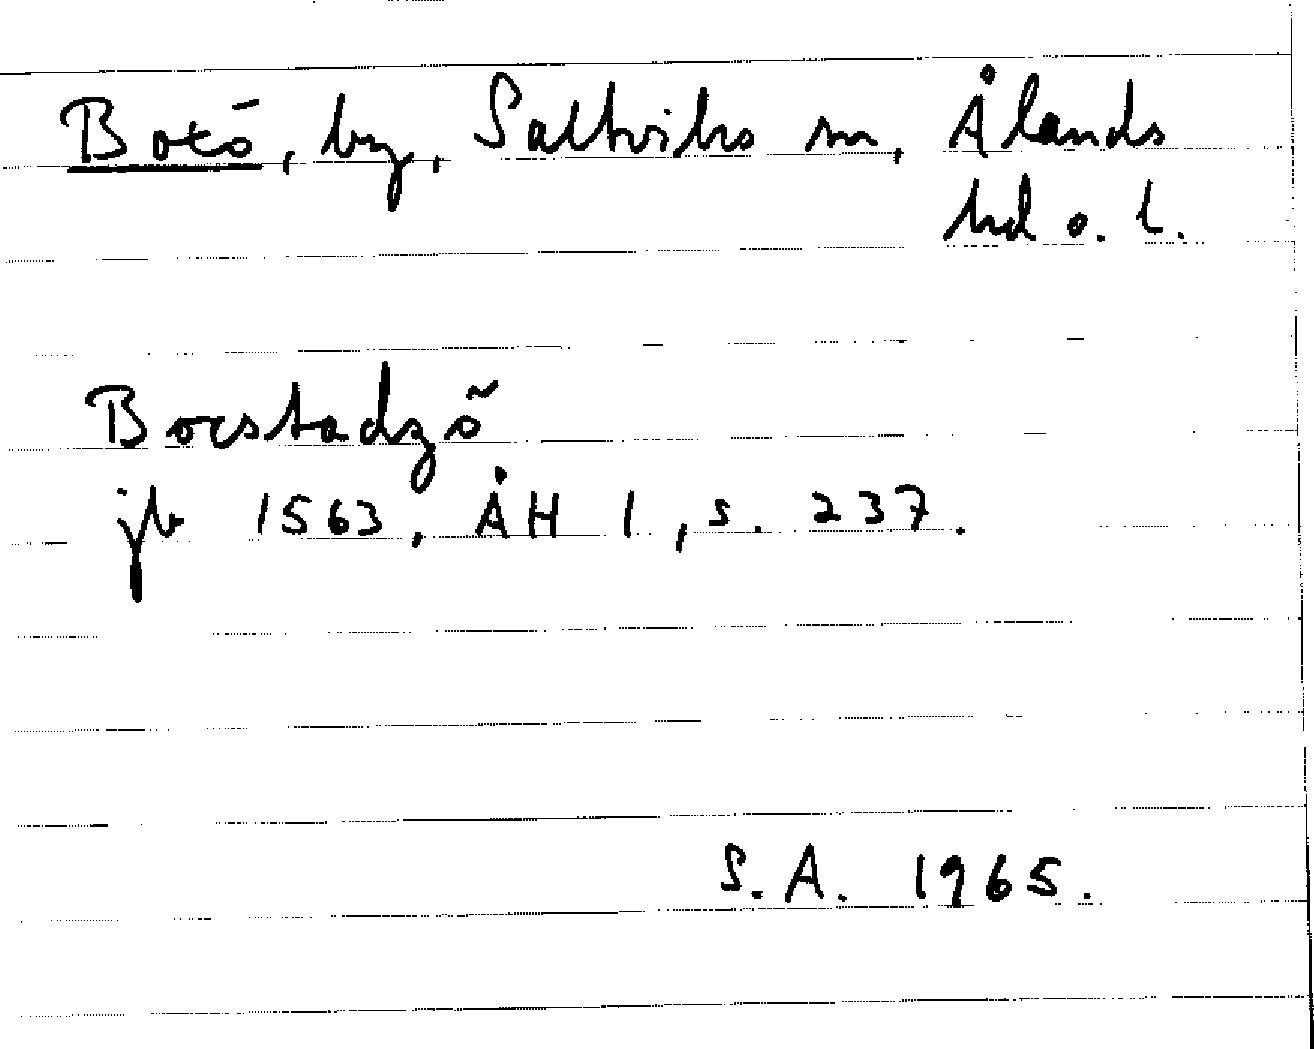 Botö, by, Saltviks sn, Ålands
hd o. l.
Bocstadzö
jb 1563, ÅH 1, s. 237.
S.A. 1965.